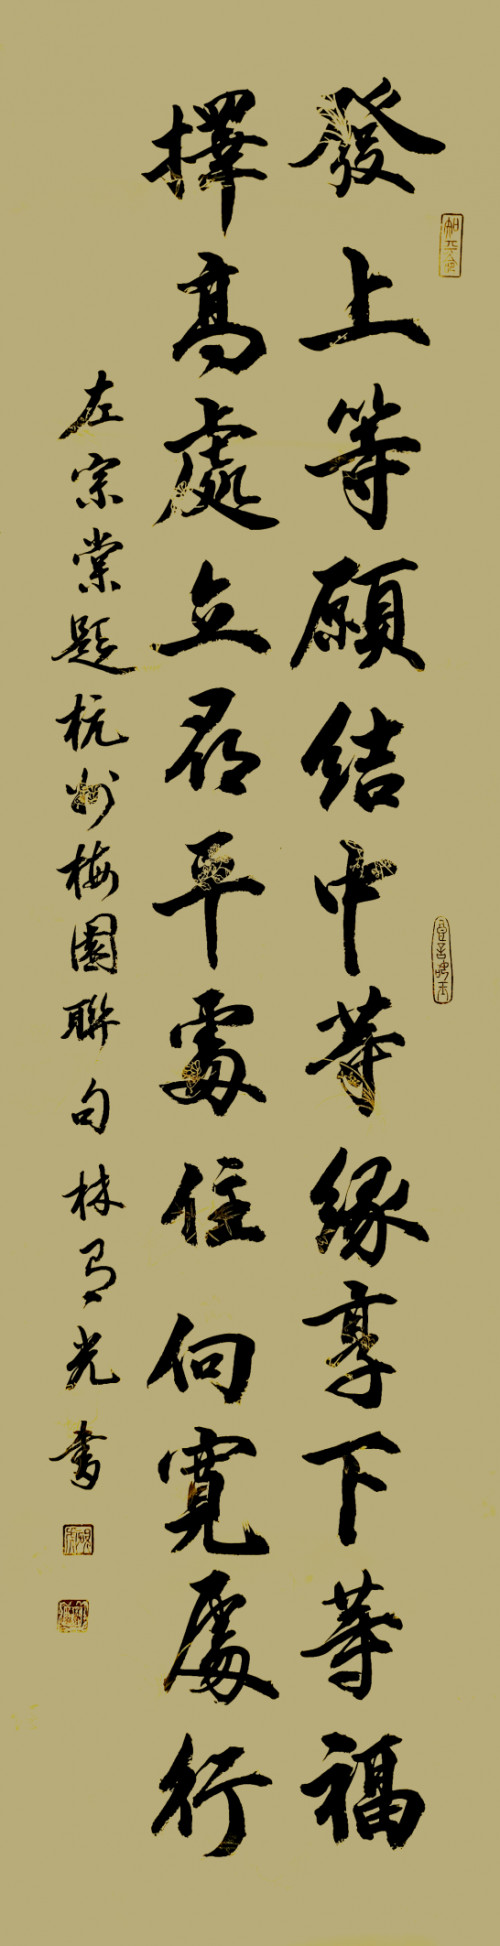 發上等願結中等緣享下等福
擇高處立尋平處住向寬處行
左宗棠題杭州梅園聯句林有光書